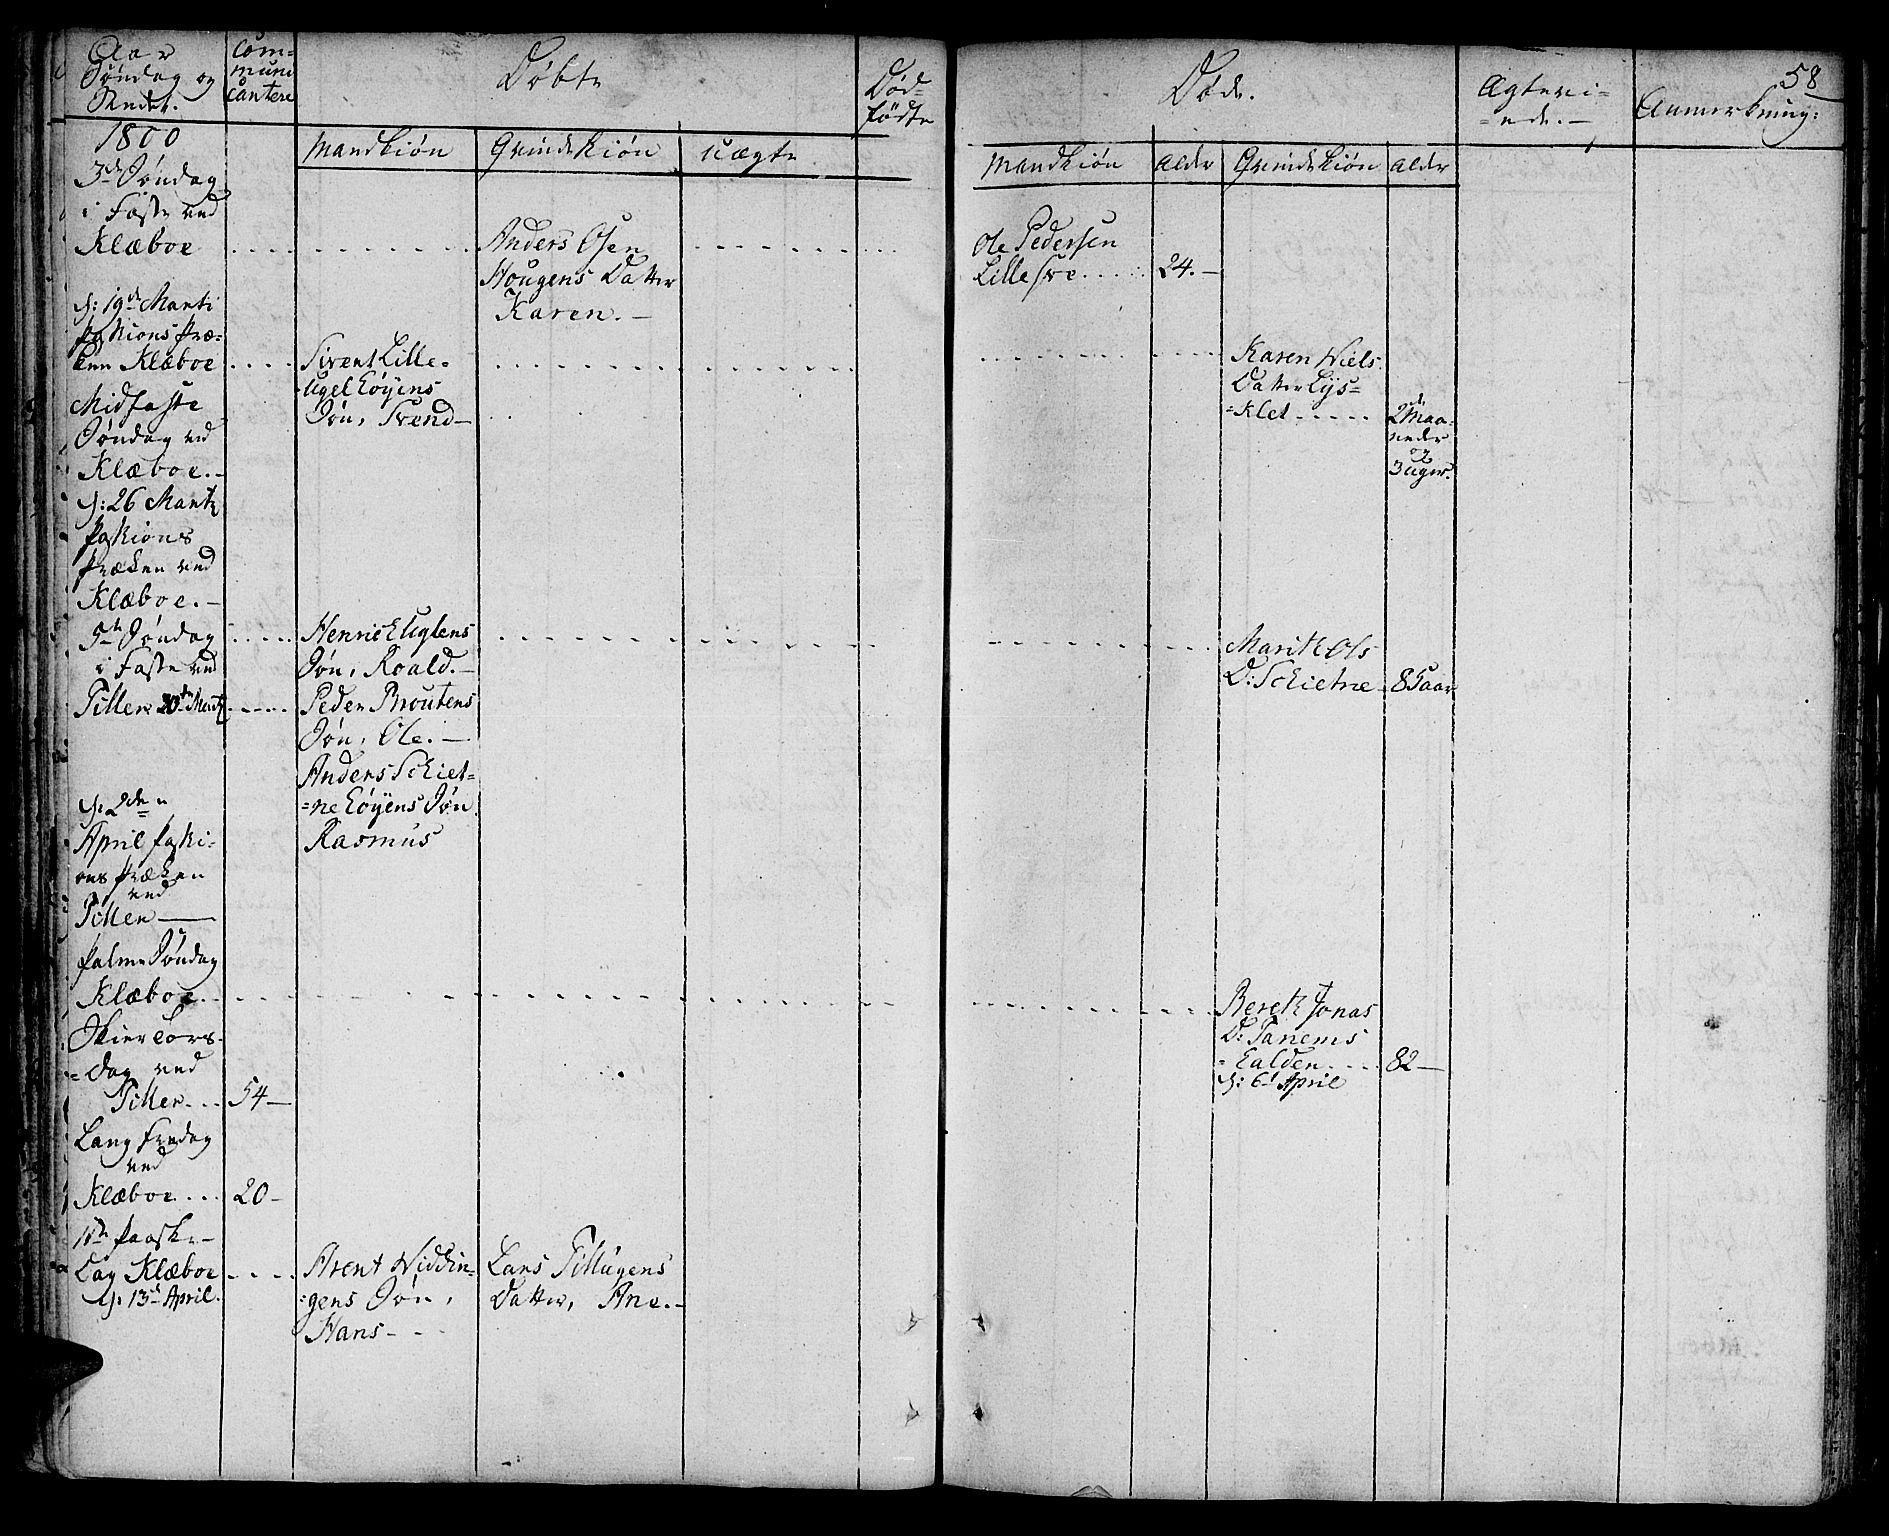 Aar
Søndag og
Stedet.
Com=
muni
cantere
Døbte
Død=
fødte
Døde.
Ægtevi=
=ede.-
58
Anmerkning:
Mandkiøn
Qvindekiøn
uægte
Mandkiøn
Alder
Qvindekiøn
Alder
1800
3de Søndag
i Faste ved
Klæboe
Anders Osen
Hougens Datter
Karen.-
Ole Pedersen
Lille
24.-
d: 19de Marti
Passions Præ=
ken Klæboe
Sivent Lille=
Ugel Eøyens
Søn, Svend-
Karen Niels
Datter Lys=
=klet
2 Maa=
neder
og
3 uger.
Midfaste
Søndag ved
Klæboe.-
d: 26 Marti
Passions
Præken ved
Klæboe.-
5te Søndag
i Faste ved
Tiller 30te Marti
Henrich Uglens
Søn, Roald.-
Peder Broutens
Søn, Ole.-
Anders Schiet=
=ne Eøyens Søn
Rasmus
Marith Ols
D: Schietne
85 aar
d: 2den
April Passi=
ons Præken
ved
Tiller
Palme Søndag
Klæboe.
Bereth Jonas
D: Tanems
=Ealden
d: 6te April
82-
Skiertors=
=dag ved
Tiller
54-
Lang Fredag
ved
Klæboe
20-
1ste Paaske-
Dag Klæboe
d: 13de April.
Arent Niddin=
=gens Søn,
Hans-
Lars Tillugens
Datter, Ane.-